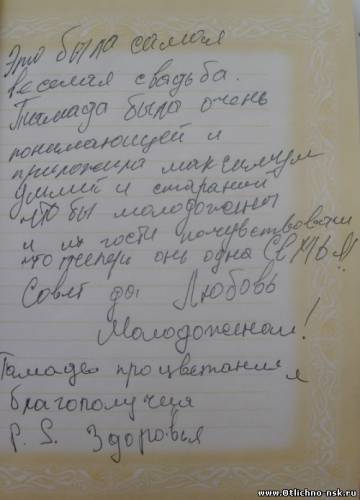 Это была самая
веселая свадьба.
Тамада была очень
понимающей и
приложила максимум
усилий и стараний
что бы молодожены
и их гости почувствовали
что теперь они одна СЕМЬЯ!
Совет да Любовь
Молодоженам!
Тамаде процветания
благополучия
P. S. Здоровья
www.Otlichno-nsk.ru